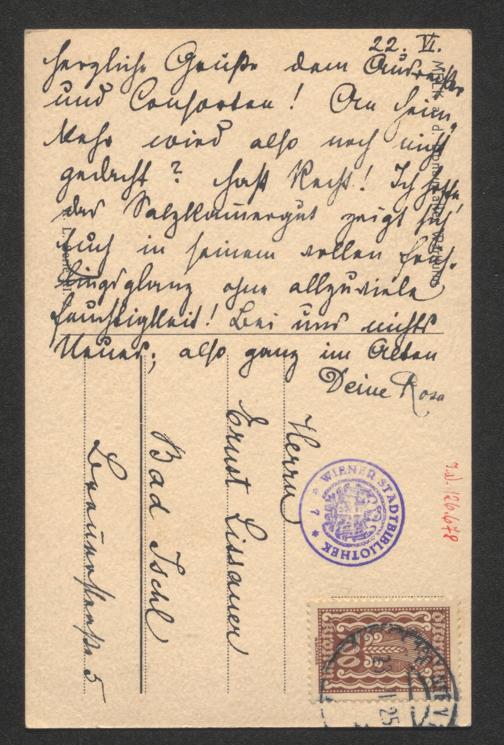 22. VI.
Herzliche Grüße dem Ausreißer
und Consorten! An Heim-
kehr wird also noch nicht
gedacht? Hast Recht! Ich hoffe
das Salzkammergut zeigt sich
Euch in seinem vollen Früh-
lingsglanz ohne allzuviele
Feuchtigkeit! Bei uns nichts
Neues; also ganz im Alten
Deine Rosa
Herrn
Ernst Lissauer
Bad Ischl
Brennerstraße 5
* WIENER STADTBIBLIOTHEK *
126.678
25